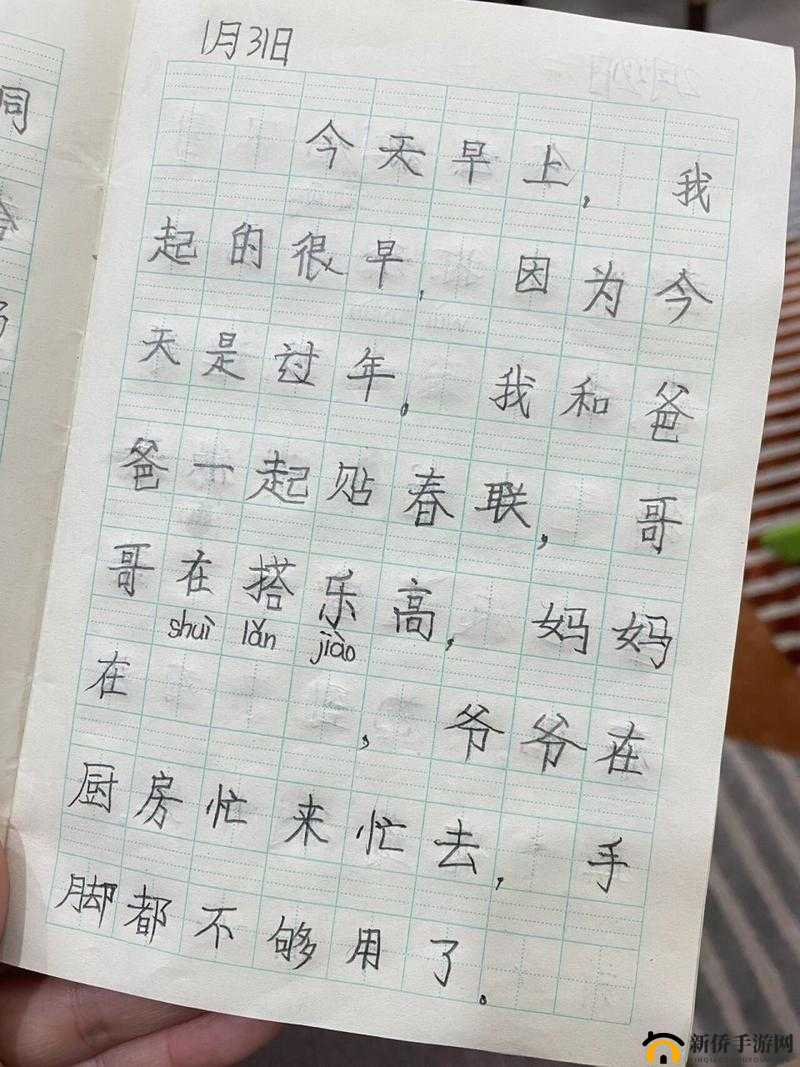 1月31日
今天早上，我
起的很早，因为今
天是过年。我和爸
爸一起贴春联，哥
哥在搭乐高，妈妈
shuì lǎn jiào
在，爷爷在
厨房忙来忙去，手
脚都不够用了。
同
新侨手游网